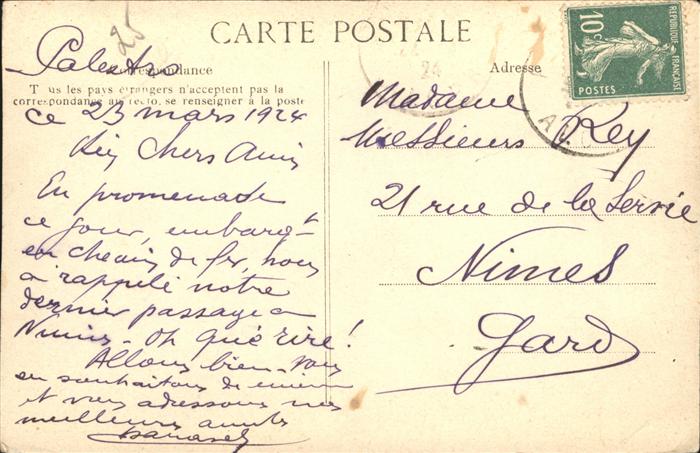 CARTE POSTALE
25
Palestro
Correspondance
Tous les pays étrangers n'acceptent pas la
correspondance au recto, se renseigner à la poste
Adresse
ce 23 mars 1924
Chers Amis
En promenade
ce jour, embarqt
en chemin de fer, nous
a rappelé notre
dernier passage a
Nimes - Oh que rire!
Allons bien - vous
en souhaitons de
et vous adressons nos
meilleures
Madame
Messieurs Rey
21 rue de la Servie
Nimes
Gard
24
REPUBLIQUE FRANÇAISE
10c
POSTES